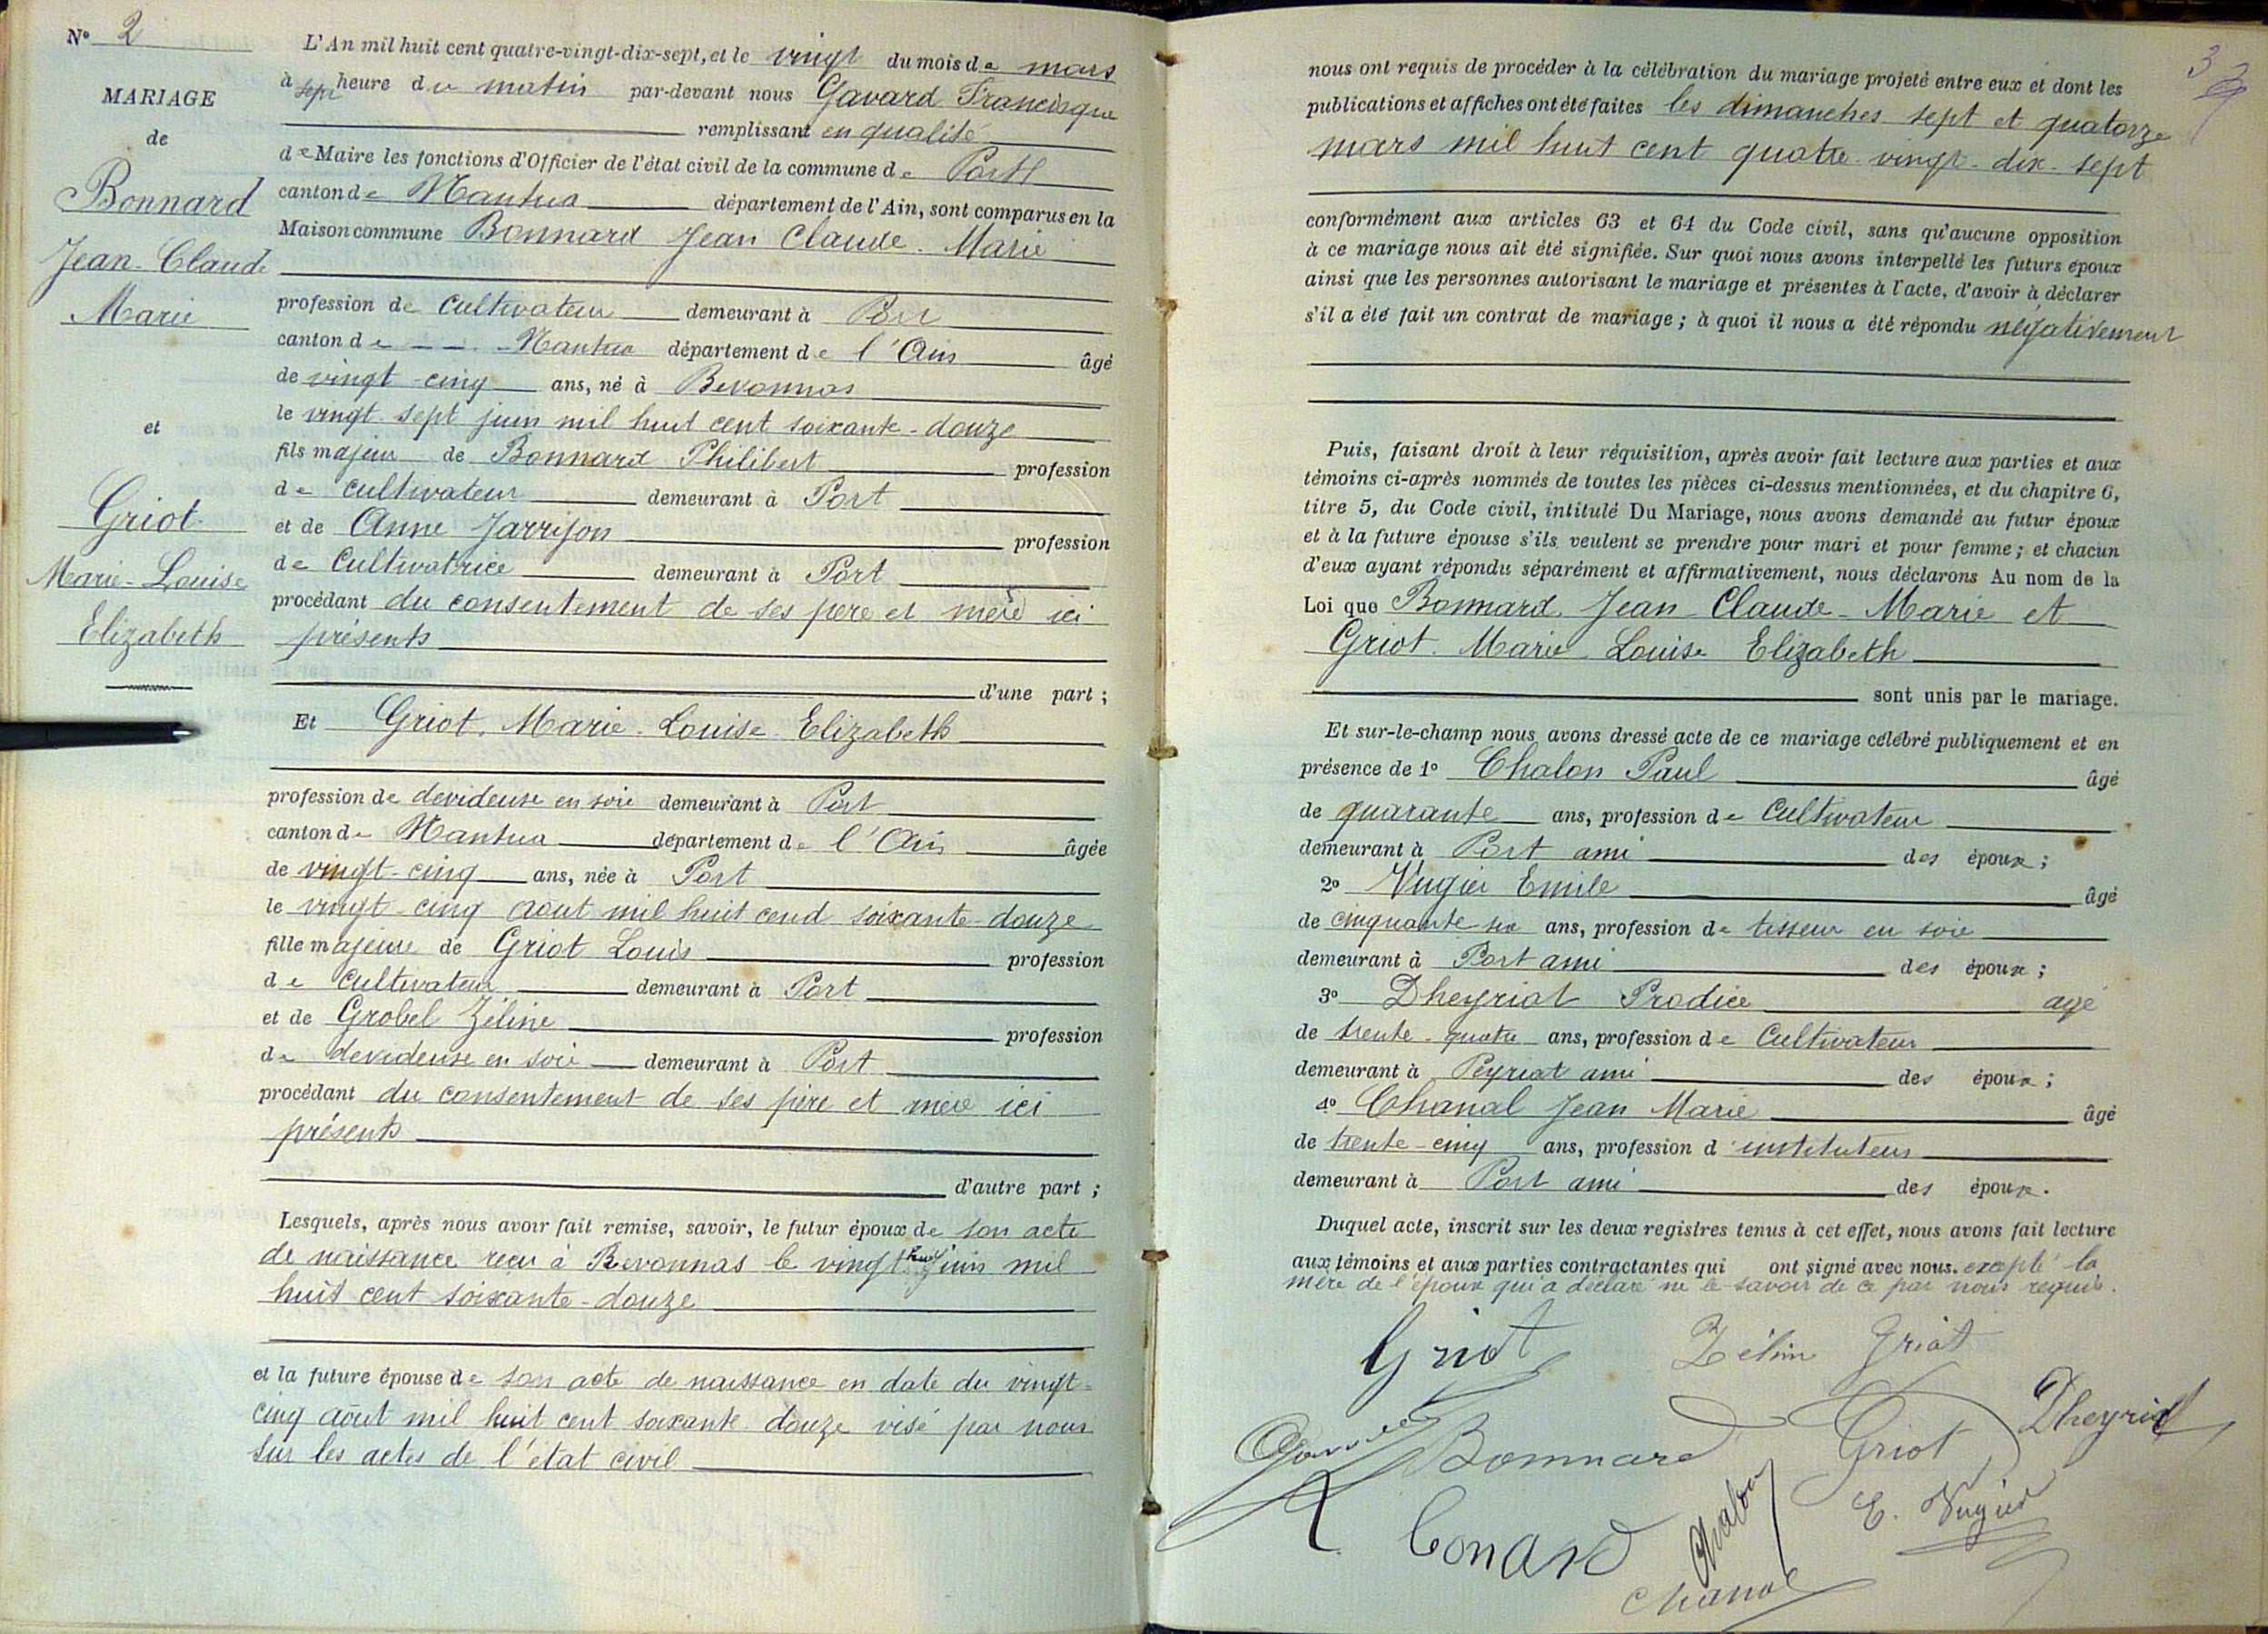 N° 2
MARIAGE
de
Bonnard
Jean-Claude
Marie
et
Griot
Marie-Louise
Elizabeth
L'An mil huit cent quatre-vingt-dix-sept, et le vingt du mois de mars
à sept heure du matin par-devant nous Gavard Francisque
remplissant en qualité
de Maire les fonctions d'Officier de l'état civil de la commune de Port
canton de Nantua département de l'Ain, sont comparus en la
Maison commune Bonnard Jean Claude-Marie
profession de cultivateur demeurant à Port
canton de Nantua département de l'Ain âgé
de vingt-cinq ans, né à Revonnas
le vingt-sept juin mil huit cent soixante-douze
fils majeur de Bonnard Philibert profession
de cultivateur demeurant à Port
et de Anne Jarrijon profession
de Cultivatrice demeurant à Port
procédant du consentement de ses père et mère ici
présents
d'une part ;
Et Griot Marie-Louise-Elizabeth
profession de devideuse en soie demeurant à Port
canton de Nantua département de l'Ain âgée
de vingt-cinq ans, née à Port
le vingt-cinq août mil huit cend soixante-douze
fille majeure de Griot Louis profession
de Cultivateur demeurant à Port
et de Grobel Zéline profession
de devideuse en soie demeurant à Port
procédant du consentement de ses père et mère ici
présents
d'autre part ;
Lesquels, après nous avoir fait remise, savoir, le futur époux de son acte
de naissance reçu à Revonnas le vingt huit juin mil
huit cent soixante-douze
et la future épouse de son acte de naissance en date du vingt-
cinq août mil huit cent soixante douze visé par nous
sur les actes de l'état civil
3
nous ont requis de procéder à la célébration du mariage projeté entre eux et dont les
publications et affiches ont été faites les dimanches sept et quatorze
mars mil huit cent quatre-vingt-dix-sept
conformément aux articles 63 et 64 du Code civil, sans qu'aucune opposition
à ce mariage nous ait été signifiée. Sur quoi nous avons interpellé les futurs époux
ainsi que les personnes autorisant le mariage et présentes à l'acte, d'avoir à déclarer
s'il a été fait un contrat de mariage ; à quoi il nous a été répondu négativement
Puis, faisant droit à leur réquisition, après avoir fait lecture aux parties et aux
témoins ci-après nommés de toutes les pièces ci-dessus mentionnées, et du chapitre 6,
titre 5, du Code civil, intitulé Du Mariage, nous avons demandé au futur époux
et à la future épouse s'ils veulent se prendre pour mari et pour femme ; et chacun
d'eux ayant répondu séparément et affirmativement, nous déclarons Au nom de la
Loi que Bonnard Jean Claude-Marie et
Griot Marie Louise Elizabeth
sont unis par le mariage.
Et sur-le-champ nous avons dressé acte de ce mariage célébré publiquement et en
présence de 1° Chalon Paul âgé
de quarante ans, profession de Cultivateur
demeurant à Port ami des époux ;
2° Vugier Emile âgé
de cinquante six ans, profession de tisseur en soie
demeurant à Port ami des époux ;
3° Dheyriat Prodice agé
de trente-quatre ans, profession de Cultivateur
demeurant à Peyriat ami des époux ;
4° Chanal Jean Marie âgé
de trente-cinq ans, profession d'instituteur
demeurant à Port ami des époux.
Duquel acte, inscrit sur les deux registres tenus à cet effet, nous avons fait lecture
aux témoins et aux parties contractantes qui ont signé avec nous. excepté la
mère de l'époux qui a déclaré ne le savoir de ce par nous requis.
Griot Zélin Griot
Bonnard Griot Dheyriat
Conard Chalon E. Vugier
Chanal